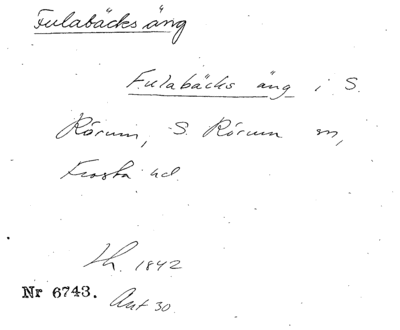 Fulabäcks äng
Fulabäcks äng i S.
Rörum, S. Rörum sn,
Frosta hd.
Lh. 1842
Nr 6743. Akt 30